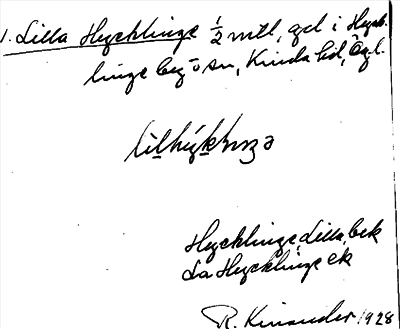 1. Lilla Hycklinge 1/2 mtl, gd i Hyck-
linge by o sn, Kinda hd, Ög.l.
Hycklinge, Lilla, bek
La Hycklinge ek
R. Kinander 1928